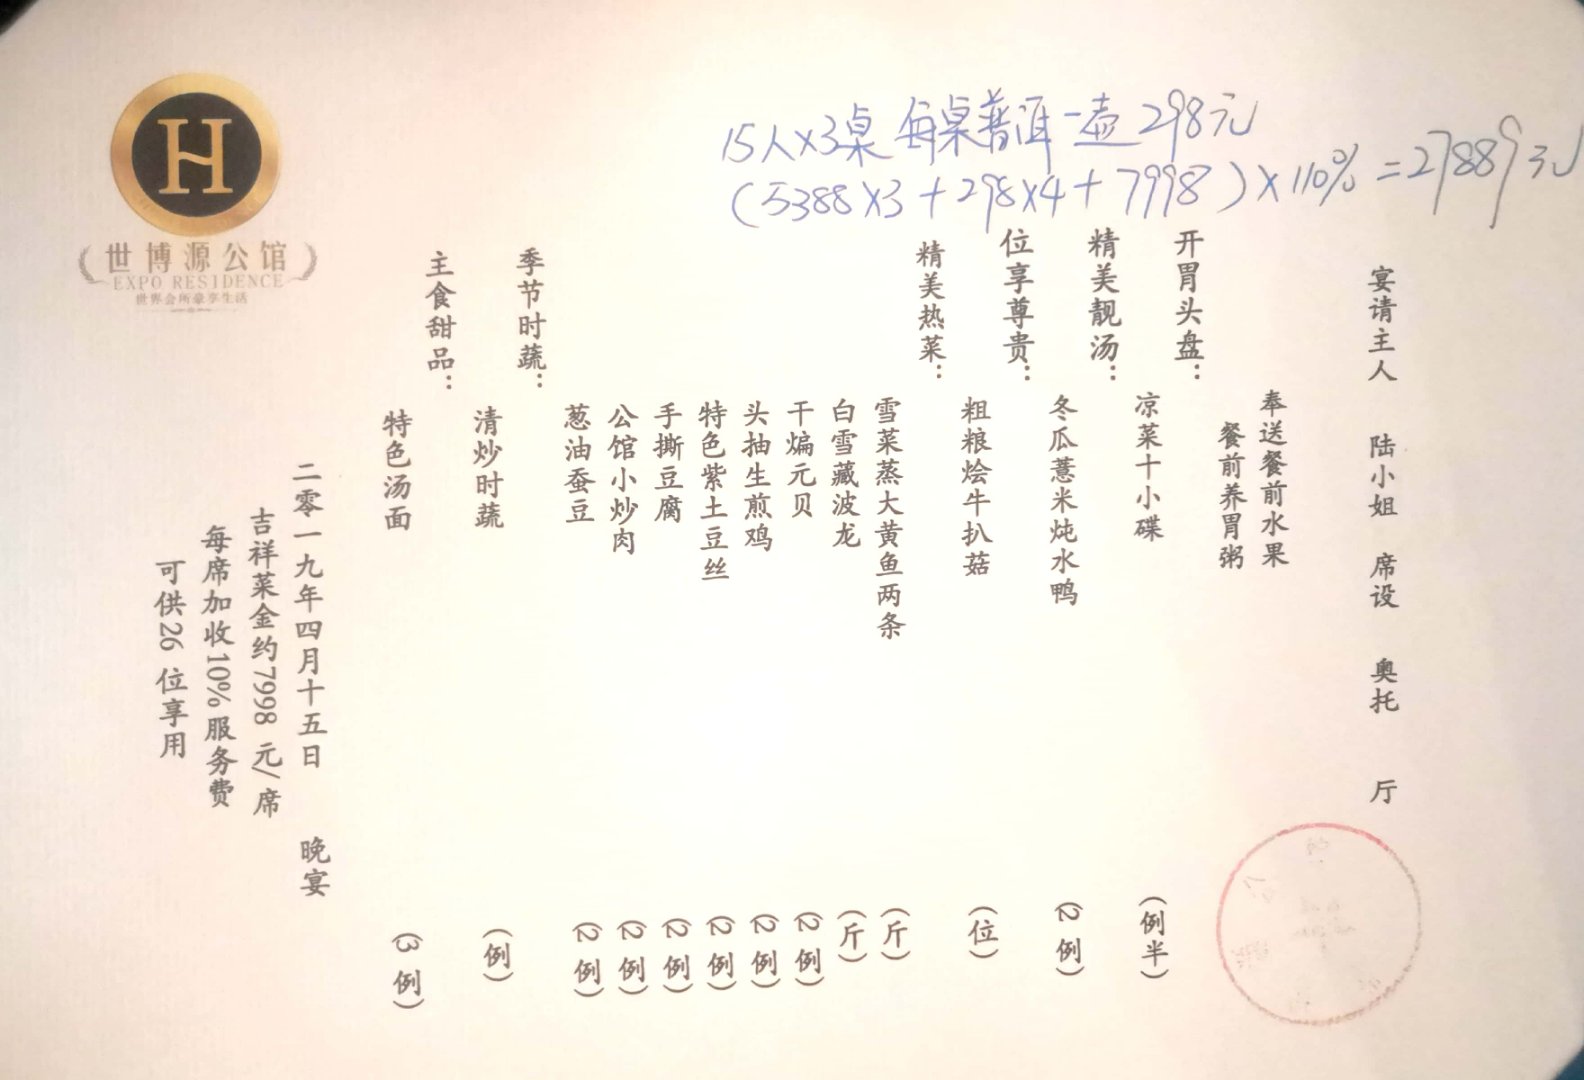 15人×3桌 每桌普洱一壶298元
(5388×3+298×4+7998)×110%=27889元
H
世博源公馆
EXPO RESIDENCE
世界会所豪享生活
宴请主人 陆小姐 席设 奥托 厅
奉送餐前水果
餐前养胃粥
开胃头盘：
凉菜十小碟 (例半)
精美靓汤：
冬瓜薏米炖水鸭 (2例)
位享尊贵：
粗粮烩牛扒菇 (位)
精美热菜：
雪菜蒸大黄鱼两条 (斤)
白雪藏波龙 (斤)
干煸元贝 (2例)
头抽生煎鸡 (2例)
特色紫土豆丝 (2例)
手撕豆腐 (2例)
公馆小炒肉 (2例)
葱油蚕豆 (2例)
季节时蔬：
清炒时蔬 (例)
主食甜品：
特色汤面 (3例)
二零一九年四月十五日 晚宴
吉祥菜金约7998元/席
每席加收10%服务费
可供26位享用